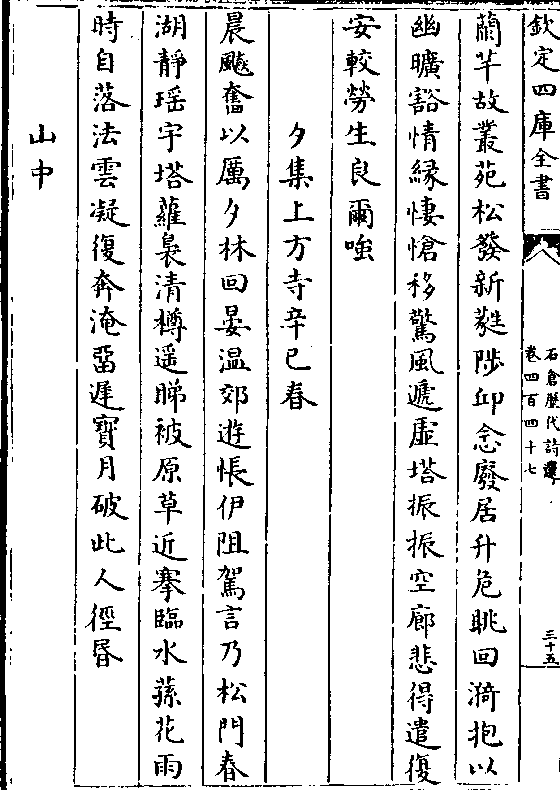 欽定四庫全書
石倉歷代詩選
卷四百四十七
三十五
蘭芊故叢苑松發新蕤陟邱念廢居升危眺回漪抱以
幽曠豁情緣悽愴移驚風遞虛塔振振空廊悲得遣復
安較勞生良爾嗤
夕集上方寺辛巳春
晨飈奮以厲夕林回晏温郊遊悵伊阻駕言乃松門春
湖靜瑶宇塔蘿裊清樽遥睇被原草近搴臨水蓀花雨
時自落法雲凝復奔淹留遲寶月破此人徑昏
山中